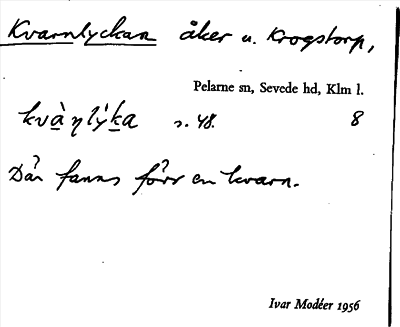 Kvarnlyckan åker u. Krogstorp,
Pelarne sn, Sevede hd, Klm l.
kvàṇlýka s. 48. 8
Där fanns förr en kvarn.
Ivar Modéer 1956